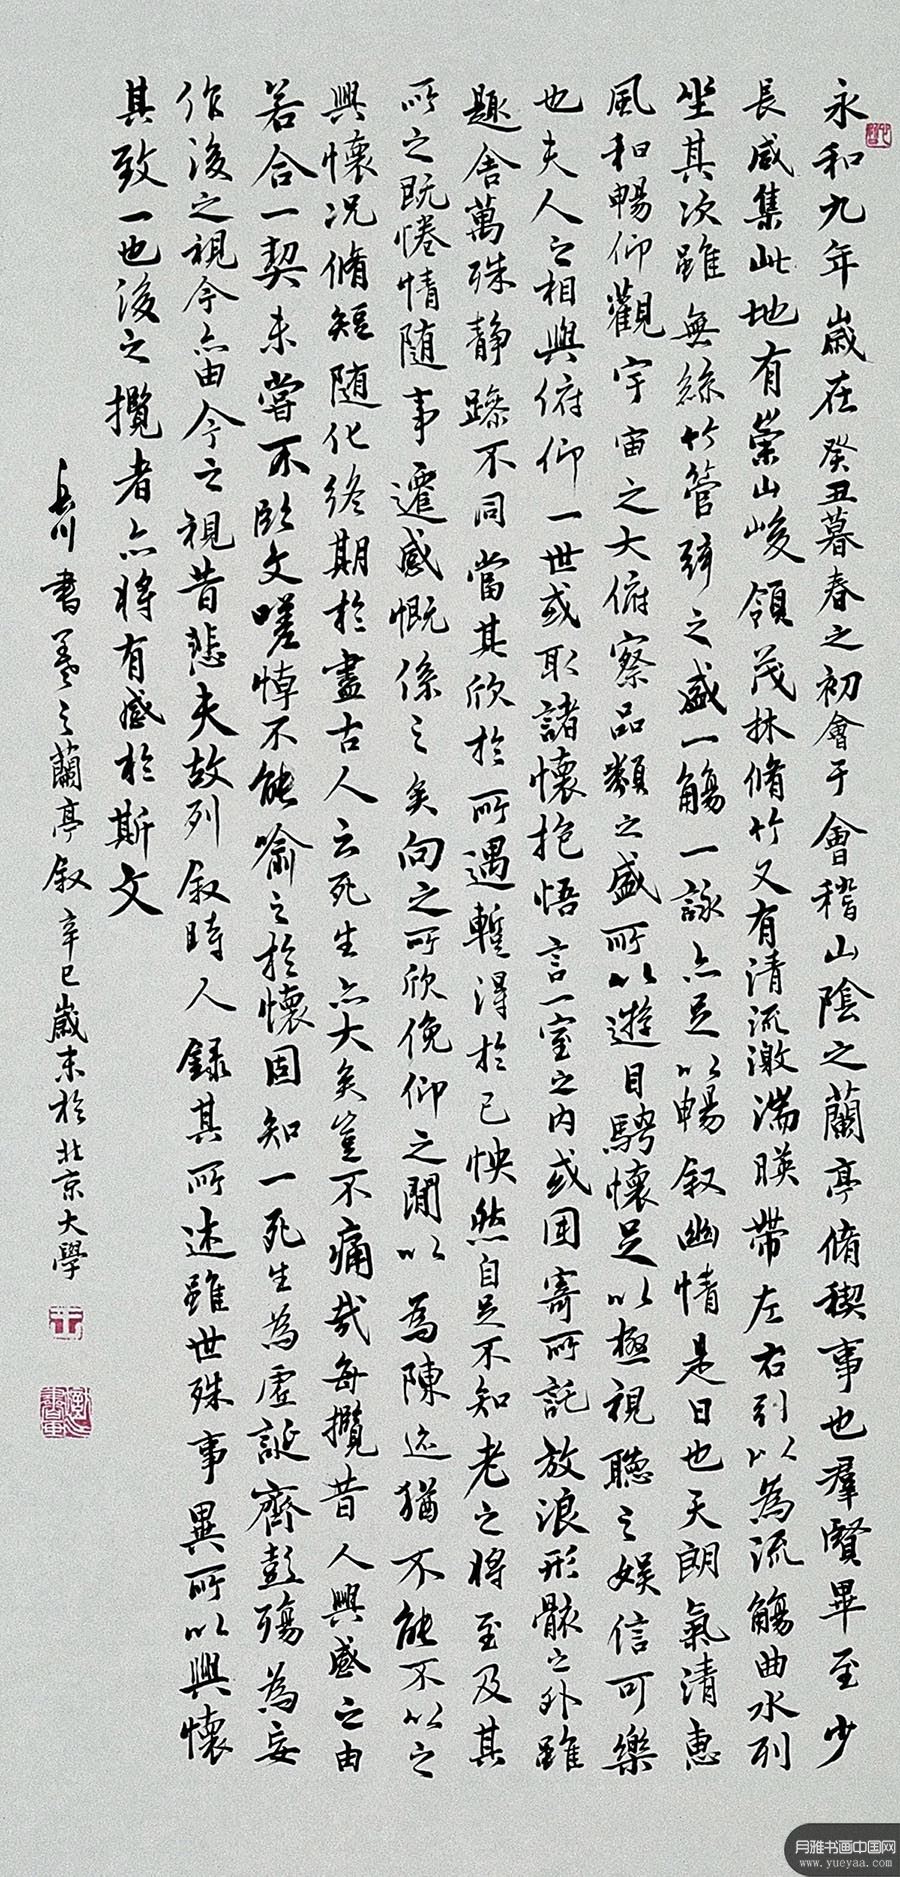 永和九年歲在癸丑暮春之初會于會稽山陰之蘭亭脩稧事也羣賢畢至少
長咸集此地有崇山峻領茂林脩竹又有清流激湍暎帶左右引以為流觴曲水列
坐其次雖無絲竹管弦之盛一觴一詠亦足以暢叙幽情是日也天朗氣清惠
風和暢仰觀宇宙之大俯察品類之盛所以遊目騁懷足以極視聽之娛信可樂
也夫人之相與俯仰一世或取諸懷抱悟言一室之內或因寄所託放浪形骸之外雖
趣舍萬殊静躁不同當其欣於所遇暫得於己怏然自足不知老之將至及其
所之既惓情随事遷感慨係之矣向之所欣俛仰之閒以為陳迹猶不能不以之
興懷况脩短随化終期於盡古人云死生亦大矣豈不痛哉每攬昔人興感之由
若合一契未嘗不臨文嗟悼不能喻之於懷固知一死生為虚誕齊彭殤為妄
作後之視今亦由今之視昔悲夫故列叙時人録其所述雖世殊事異所以興懷
其致一也後之攬者亦將有感於斯文
岳川書羲之蘭亭叙辛巳歲末於北京大學
月雅书画中国网
www.yueyaa.com